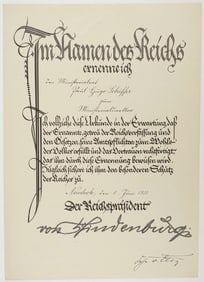 Im Namen des Reichs
ernenne ich
den Ministerialrat
zum
Ministerialdirektor
Ich vollziehe diese Urkunde in der Erwartung, daß
der Ernannte, getreu der Reichsverfassung und
den Gesetzen, seine Amtspflichten zum Wohle
des Volkes erfüllt und das Vertrauen rechtfertigt,
das ihm durch diese Ernennung bewiesen wird.
Zugleich sichere ich ihm den besonderen Schutz
des Reiches zu.
Neudeck, den Juni
Der Reichspräsident
von Hindenburg